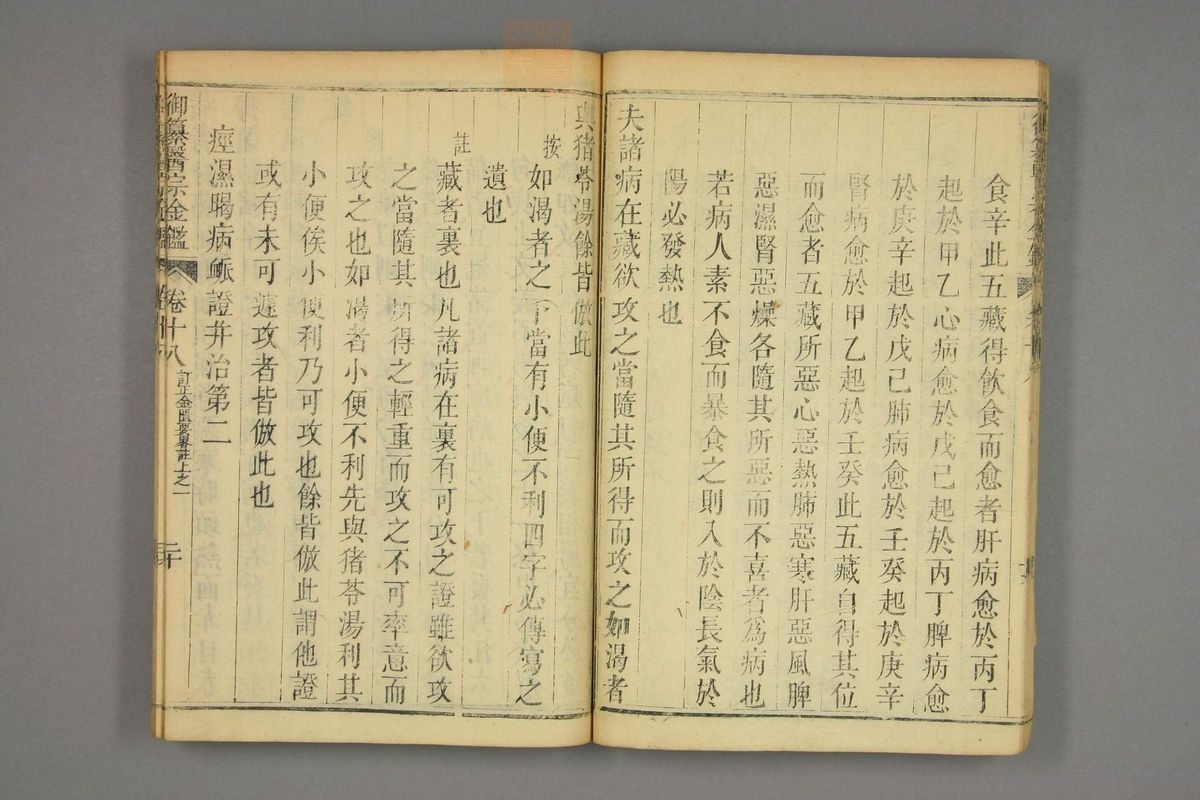 食辛此五藏得飲食而愈者肝病愈於丙丁
起於甲乙心病愈於戊己起於丙丁脾病愈
於庚辛起於戊己肺病愈於壬癸起於庚辛
腎病愈於甲乙起於壬癸此五藏自得其位
而愈者五藏所惡心惡熱肺惡寒肝惡風脾
惡濕腎惡燥各隨其所惡而不喜者為病也
若病人素不食而暴食之則入於陰長氣於
陽必發熱也
夫諸病在藏欲攻之當隨其所得而攻之如渴者
與猪苓湯餘皆倣此
按 如渴者之下當有小便不利四字必傳寫之
遺也
註 藏者裏也凡諸病在裏有可攻之證雖欲攻
之當隨其所得之輕重而攻之不可率意而
攻之也如渴者小便不利先與猪苓湯利其
小便俟小便利乃可攻也餘皆倣此謂他證
或有未可遽攻者皆倣此也
痙濕暍病脈證并治第二
御纂醫宗金鑑 卷十八 訂正金匱要畧註上之一